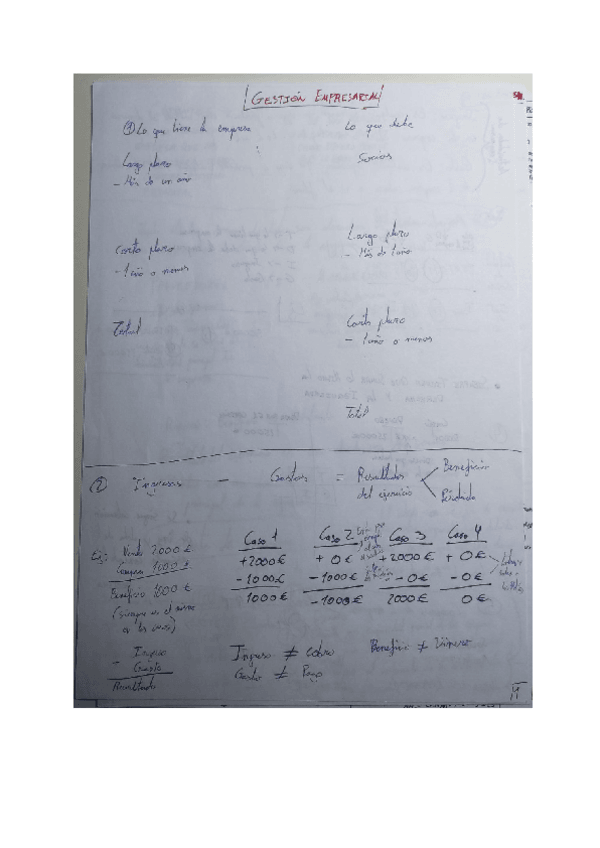 GESTIÓN EMPRESARIAL
① Lo que tiene la empresa
Lo que debe
Largo plazo
- Más de un año
Socios
Largo plazo
- Más de 1 año
Corto plazo
- 1 año o menos
Total
Corto plazo
- 1 año o menos
Total
② Ingresos - Gastos = Resultados del ejercicio
Beneficio
Pérdida
Ej: Vendo 2000 €
Compro 1000 €
Beneficio 1000 €
(siempre es el mismo
a los casos)
Caso 1
+2000 €
-1000 €
1000 €
Caso 2
+ 0 €
-1000 €
-1000 €
Caso 3
+2000 €
- 0 €
2000 €
Caso 4
+ 0 €
- 0 €
0 €
Ingreso
- Gasto
Resultado
Ingreso ≠ Cobro
Gasto ≠ Pago
Beneficio ≠ Dinero